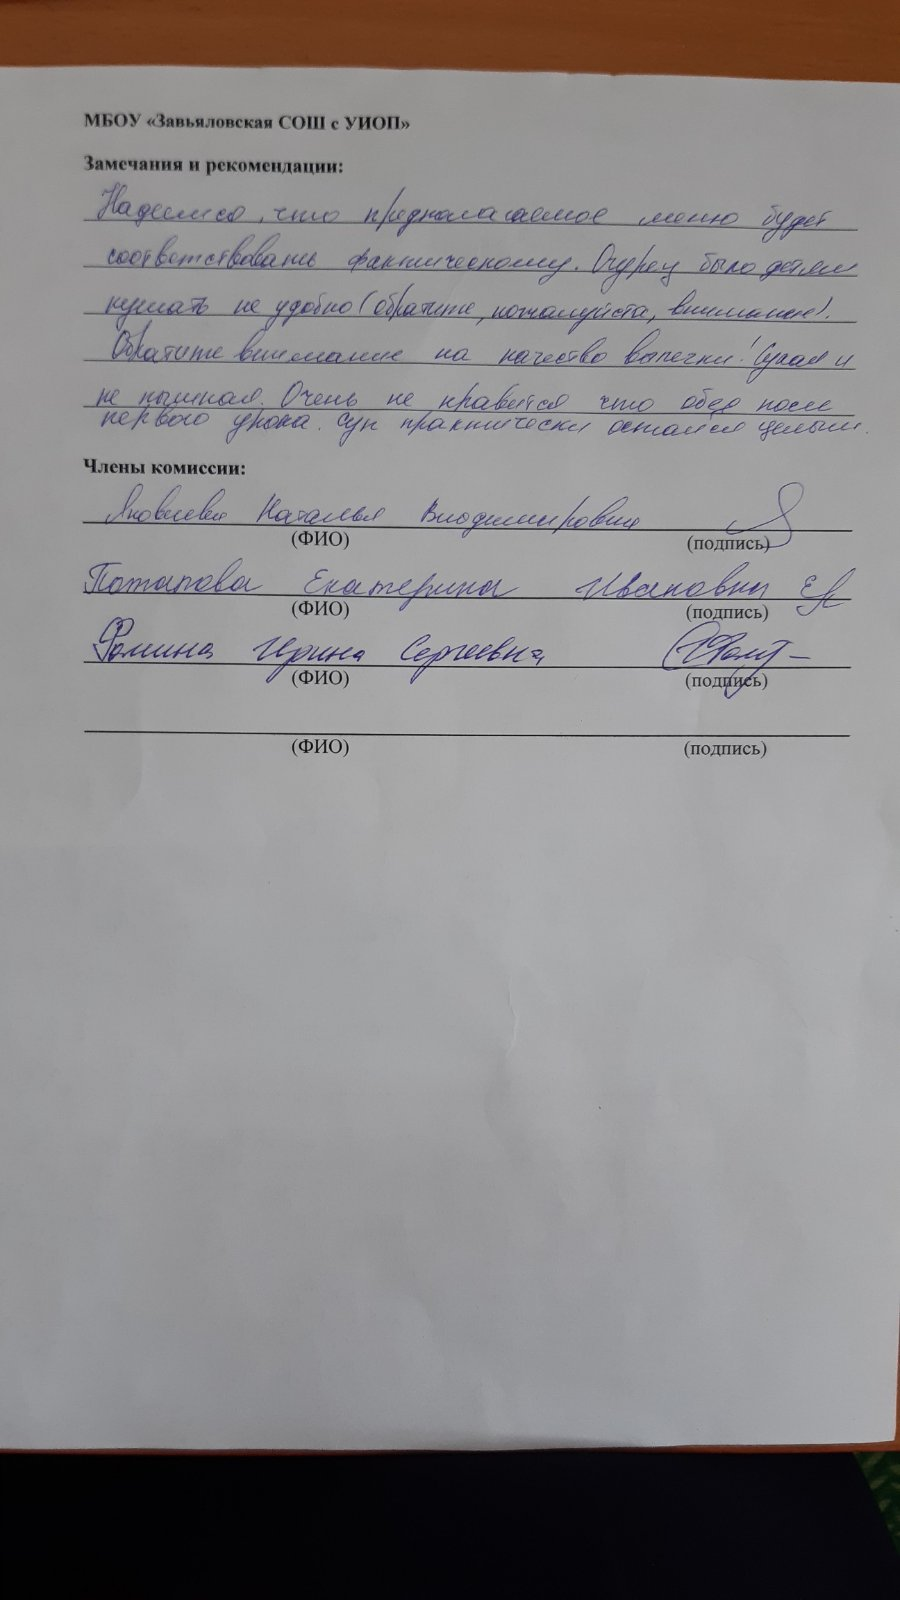 МБОУ «Завьяловская СОШ с УИОП»
Замечания и рекомендации:
Надеемся, что предполагаемое меню будет
соответствовать фактическому. Огурец было детям
кушать не удобно (обратите, пожалуйста, внимание).
Обратите внимание на качество выпечки! Сухая и
не пышная. Очень не нравится что обед после
первого урока. Суп практически остался целым.
Члены комиссии:
Яковлева Наталья Владимировна
(ФИО) (подпись)
Потапова Екатерина Ивановна
(ФИО) (подпись)
Фомина Ирина Сергеевна
(ФИО) (подпись)
(ФИО) (подпись)